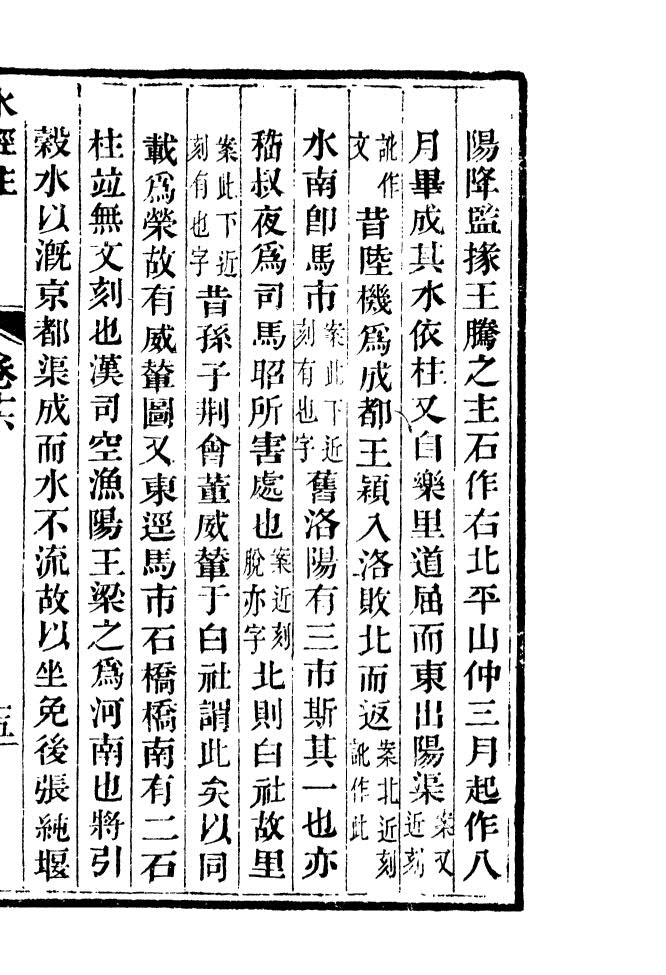 陽降監掾王騰之主石作右北平山仲三月起作八
月畢成其水依柱又自樂里道屈而東出陽渠案又近刻
訛作文昔陸機爲成都王穎入洛敗北而返案北近刻訛作此
水南卽馬市案此下近刻有也字舊洛陽有三市斯其一也亦
嵇叔夜爲司馬昭所害處也案近刻脫亦字北則白社故里
案此下近刻有也字昔孫子荆會董威輦于白社謂此矣以同
載爲榮故有威輦圖又東逕馬市石橋橋南有二石
柱竝無文刻也漢司空漁陽王梁之爲河南也將引
穀水以溉京都渠成而水不流故以坐免後張純堰
水經注 卷十六 十五